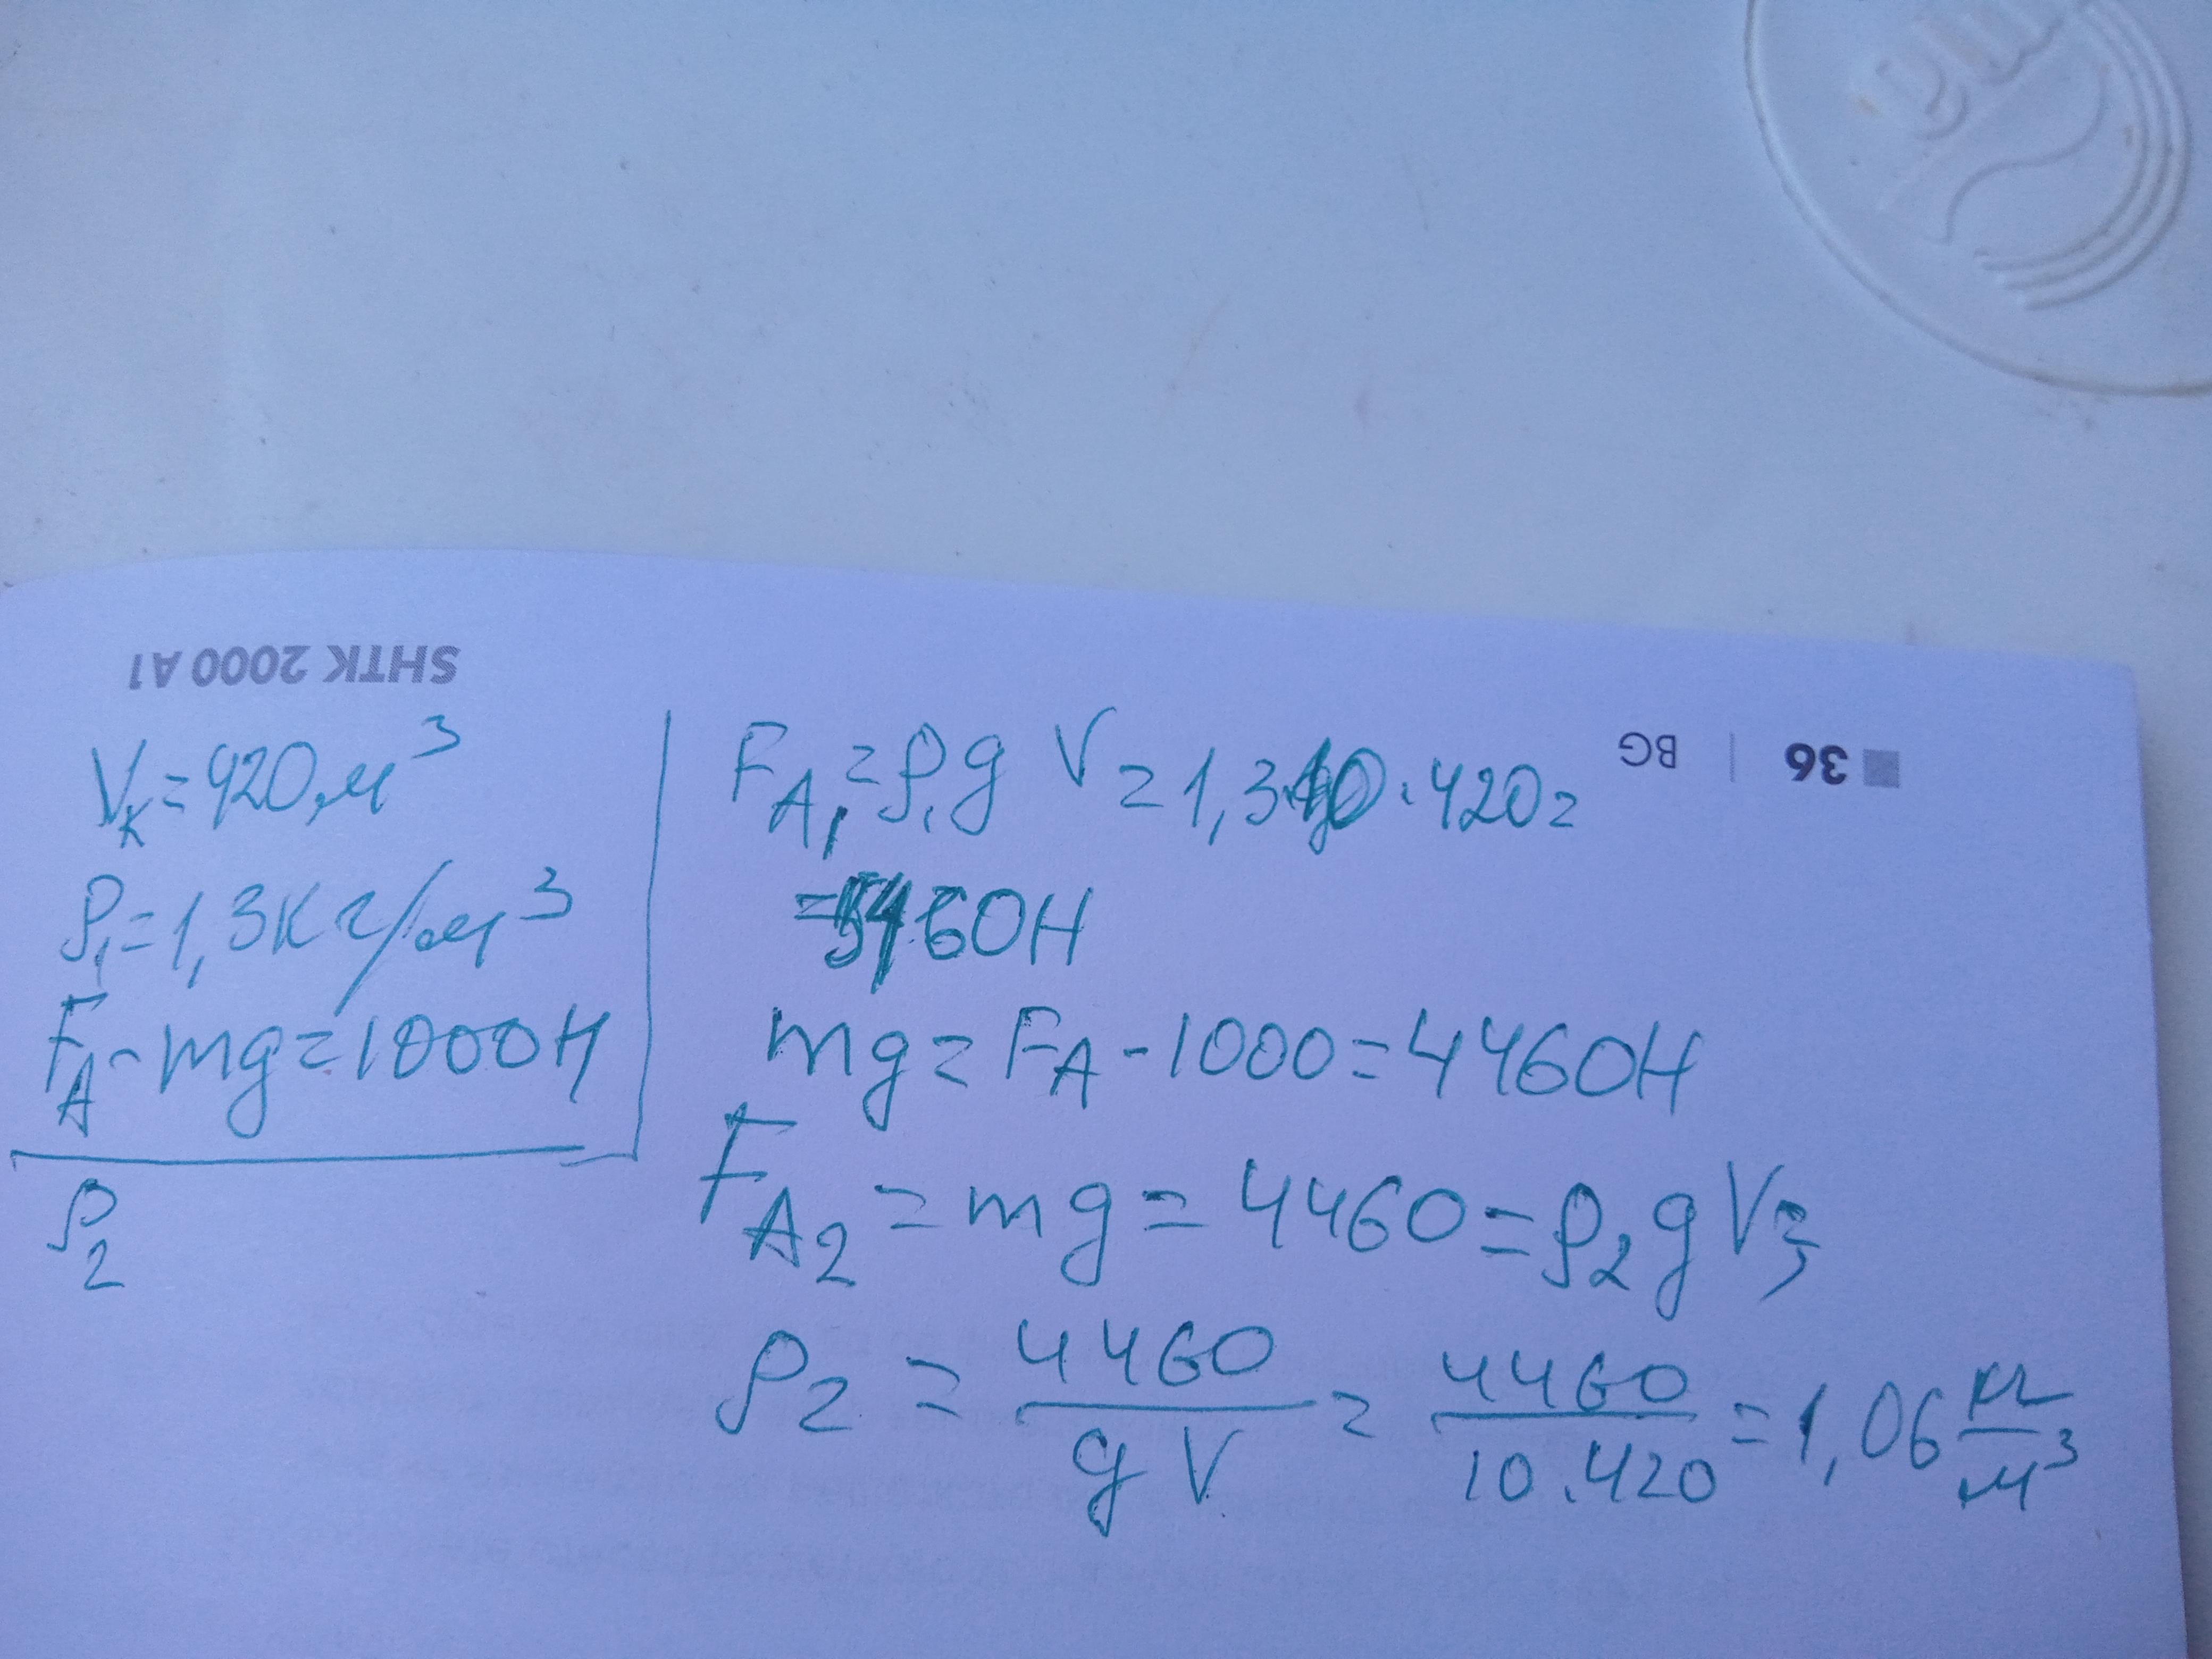 SHTK 2000 A1
36 | BG
Vк=420м³
ρ₁=1,3кг/м³
F_A-mg=1000Н
ρ₂
F_A₁=ρ₁gV=1,3·10·420=
=5460Н
mg=F_A-1000=4460Н
F_A₂=mg=4460=ρ₂gV⇒
ρ₂=4460/gV=4460/10.420=1,06 кг/м³